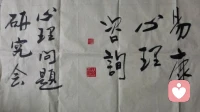 易康
心理
咨詢
心理问题
研究会